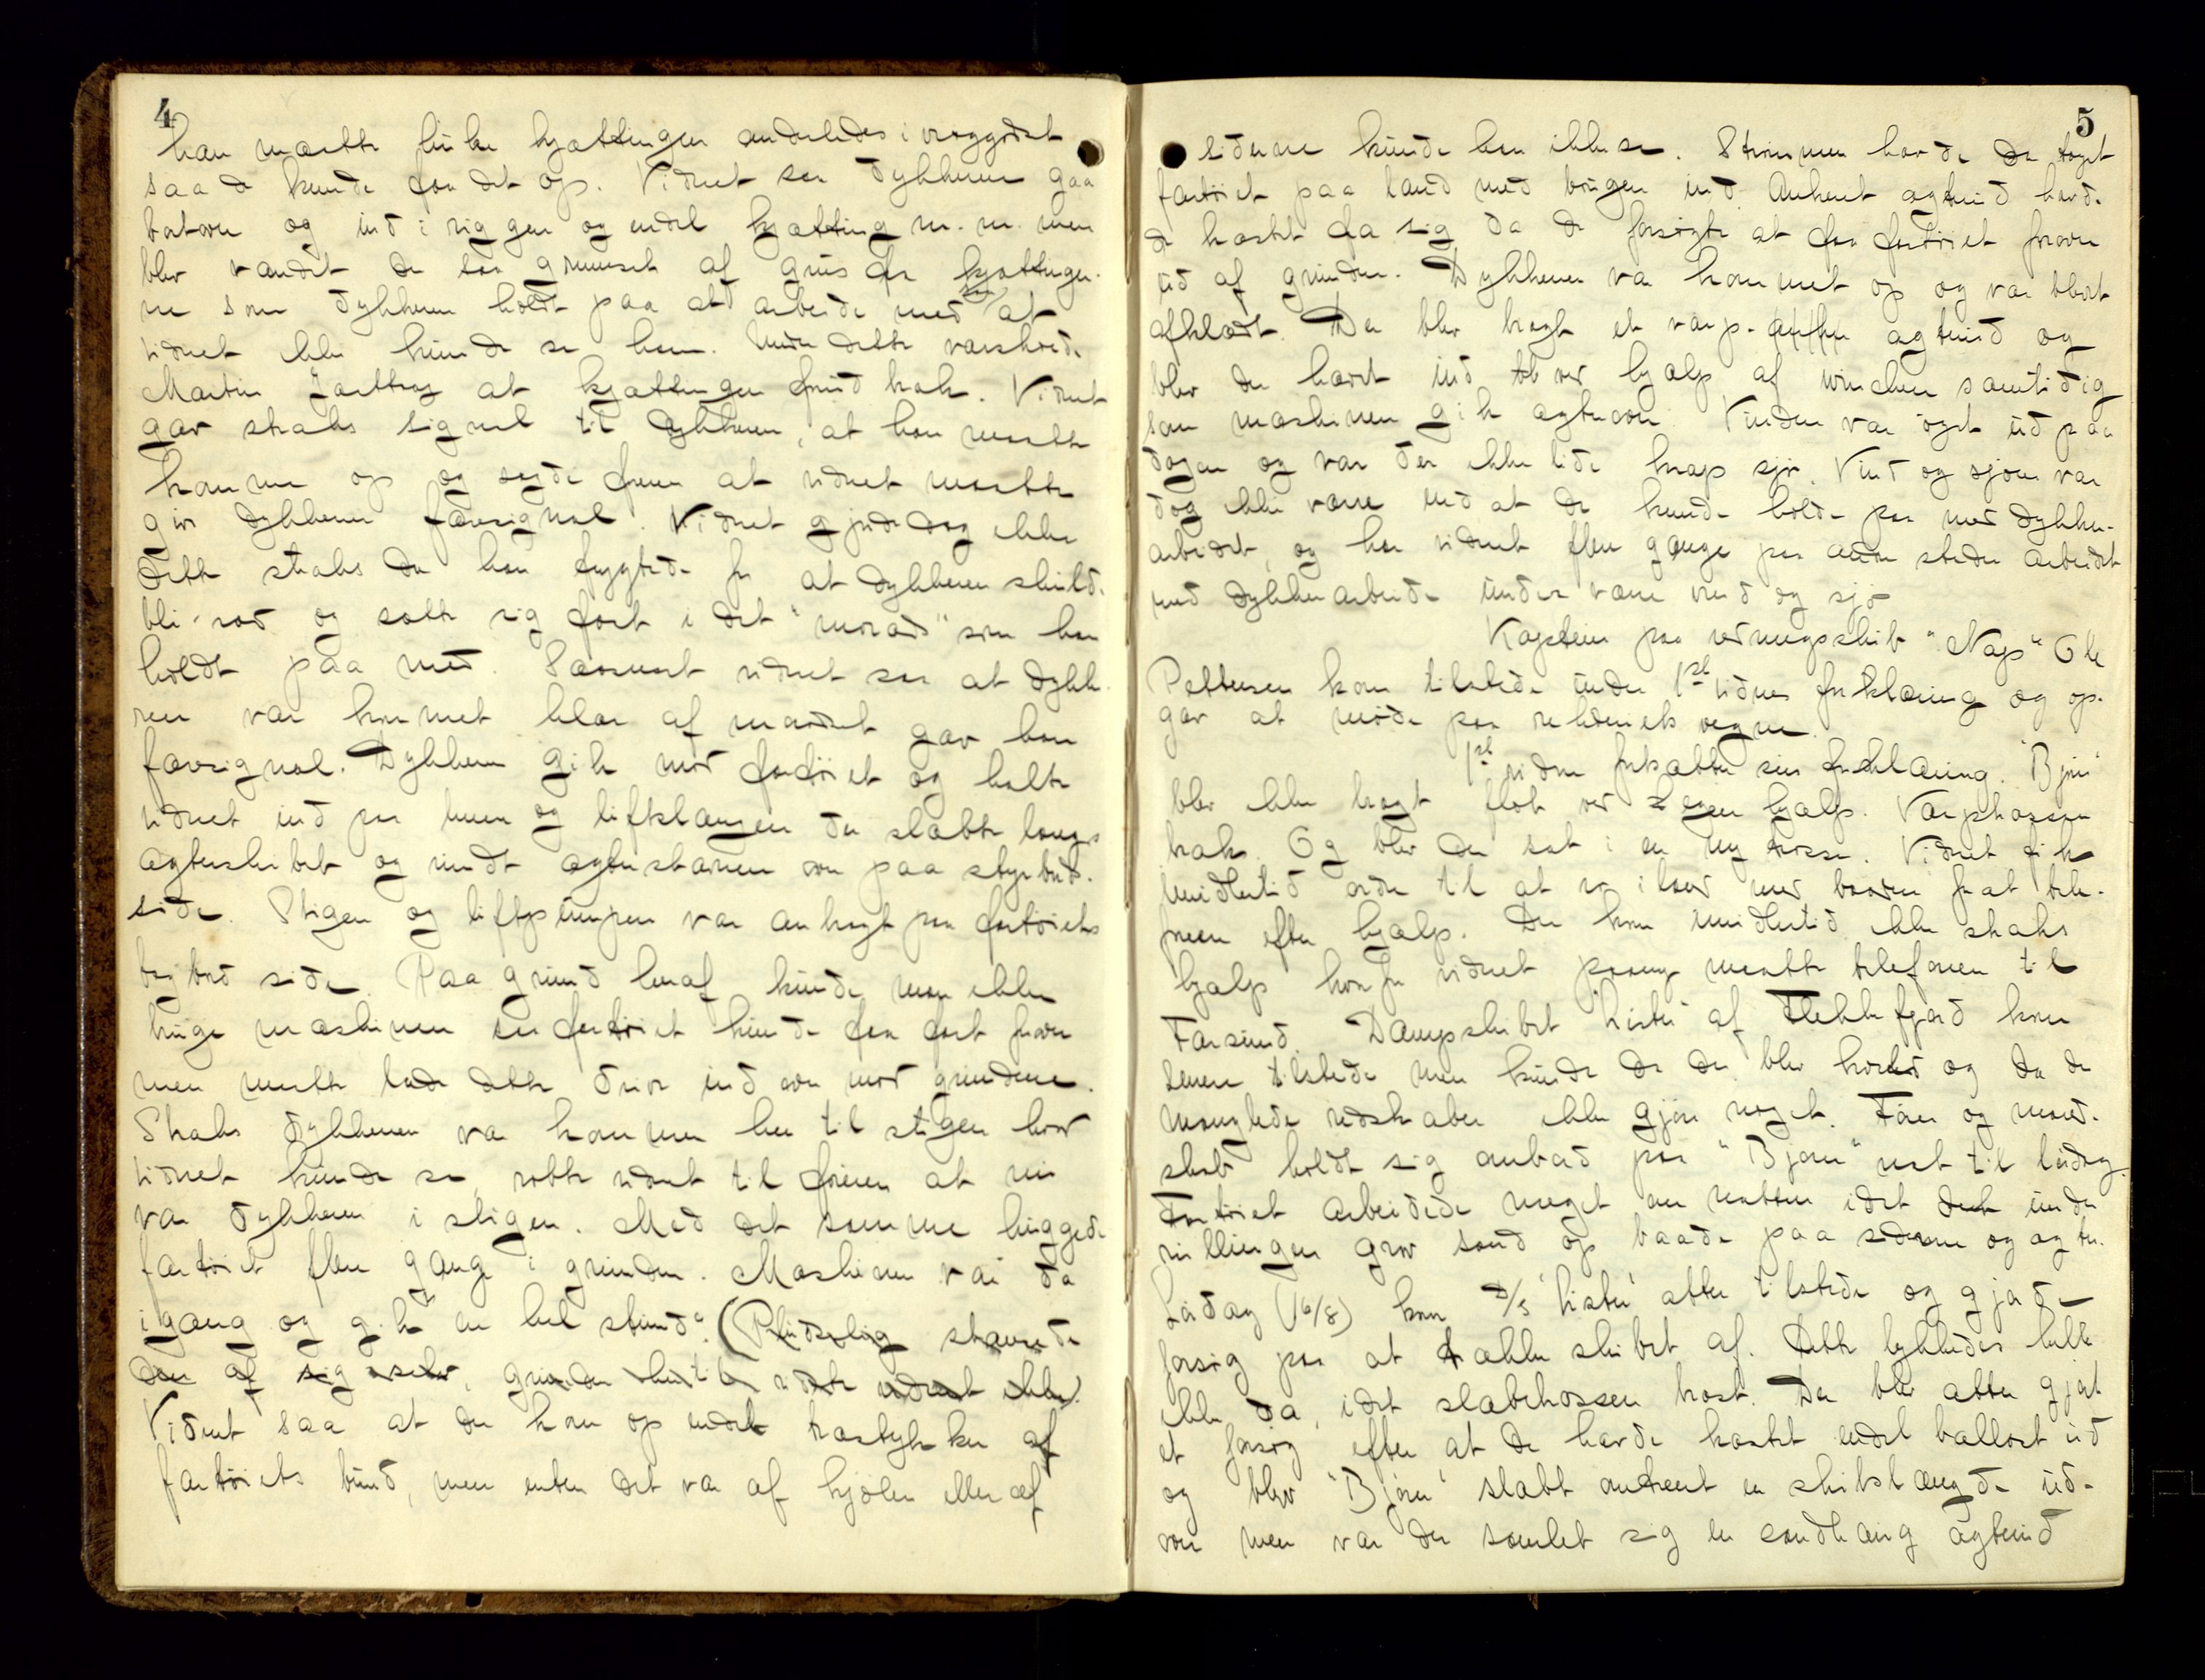 4
han maatte huke kjættingen anderledes i vraggodset
saa de kunde faa det op. Vidnet saa dykkeren gaa
bortover og ind i riggen og endel kjætting m. m. men
blev vandet da saa grumset af grus fra kjættinger-
ne som dykkeren holdt paa at arbeide med at
vidnet ikke kunde se ham. Under dette varskoede
Martin at kjættingen forud brak. Vidnet
gav straks signal til dykkeren, at han maatte
komme op og sagde føreren at vidnet maatte
give dykkeren faresignal. Vidnet gjorde dog ikke
dette straks da han frygtede for at dykkeren skulde
bli ræd og sætte sig fast i det "morads" som han
holdt paa med. Saasnart vidnet saa at dykke-
ren var kommet klar af moradset gav han
faresignal. Dykkeren gik mod fartøiet og halte
vidnet ind paa linen og luftslangen da slæbte langs
agterskibet og rundt agterstavnen over paa styrbord-
side. Stigen og luftpumpen var anbragt paa fartøiets
bagbord side. Paa grund heraf kunde man ikke
bruge maskinen saa fartøiet kunde faa fart forover
men maatte lade dette drive ind over mod grundene.
Straks dykkeren var kommen hen til stigen hvor
vidnet kunde se, raabte vidnet til føreren at nu
var dykkeren i stigen. Med det samme huggede
fartøiet flere gange i grunden. Maskinen var da
igang og gik en hel stund. (Pludselig stansede
den af sig selv, grunden hertil vidste vidnet ikke).
Vidnet saa at der kom op endel træstykker af
fartøiets bund, men enten det var af kjølen eller af
5
siderne kunde han ikke se. Strømmen havde da taget
fartøiet paa land med baugen ind. Ankeret agterud havde
de kastet fra sig da de forsøgte at faa fartøiet forover
ud af grunden. Dykkeren var kommet op og var blevet
afklædt. Der blev bragt et varp-anker agterud og
blev der hævet ind ved hjælp af winchen samtidig
som maskinen gik agterover. Vinden var øget ud paa
dagen og var der ikke lide krap sjø. Vind og sjøen var
dog ikke værre end at de kunde holde paa med dykker-
arbeidet, og har vidnet flere gange paa andre steder arbeidet
med dykkerarbeide under værre vind og sjø
Kaptein paa redningsskib "Nap" Ole
Pettersen kom tilstede under 1ste vidnes forklaring og op-
gav at møde paa rederiets vegne.
1ste vidne fortsatte sin forklaring. "Bjørn"
blev ikke bragt flot ved egen hjælp. Varptrossen
brak. Og blev der sat i en ny trosse. Vidnet fik
imidlertid ordre til at ro iland med baaden for at tele-
fonere efter hjælp. Der kom imidlertid ikke straks
hjælp hvorfor vidnet paany maatte telefonere til
Farsund. Dampskibet "Lister" af Flekkefjord kom
senere tilstede men kunde da der blev kvæld og da de
manglede redskaber ikke gjøre noget. Fører og mand-
skab holdt sig ombord paa "Bjørn" nat til lørdag.
Fartøiet arbeidede meget om natten idet det under
rullingen grov sand op baade paa siderne og agter.
Lørdag (16/8) kom D/S "Lister" atter tilstede og gjorde
forsøg paa at trække skibet af. Dette lykkedes heller
ikke da, idet slæbetrossen brast. Der blev atter gjort
et forsøg efter at de havde kastet endel ballast ud
og blev "Bjørn" slæbt omtrent en skibslængde ud-
over men var der samlet sig en sandhaug agterud